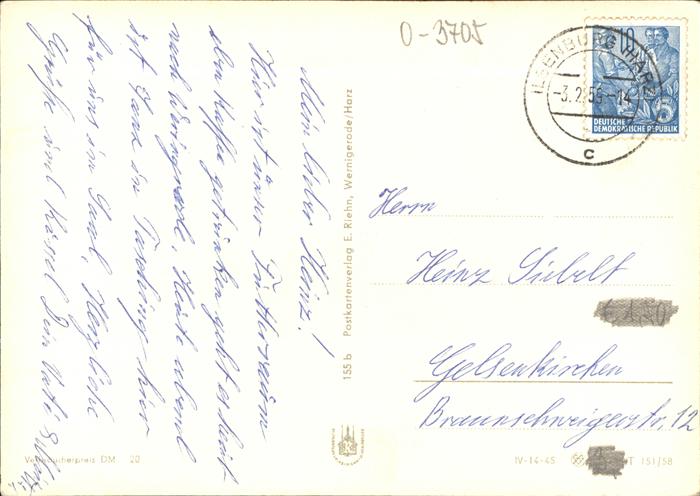 O-3705
ILSENBURG (HARZ)
-3.2.59-14
c
10
5
DEUTSCHE
DEMOKRATISCHE REPUBLIK
Mein lieber Heinz!
Hier ist unser
eben Kaffee getrunken geht es heut
nach Wernigerode. Heute abend
ist Tanz u. Fasching hier
für uns im Saal. Herzliche
Grüße und Küsse Dein
155 b Postkartenverlag E. Riehn, Wernigerode/Harz
Herrn
Heinz Siebelt
€ 1,50
Gelsenkirchen
Braunschweigerstr. 12
Verbraucherpreis DM 20
IV-14-45 T 151/58